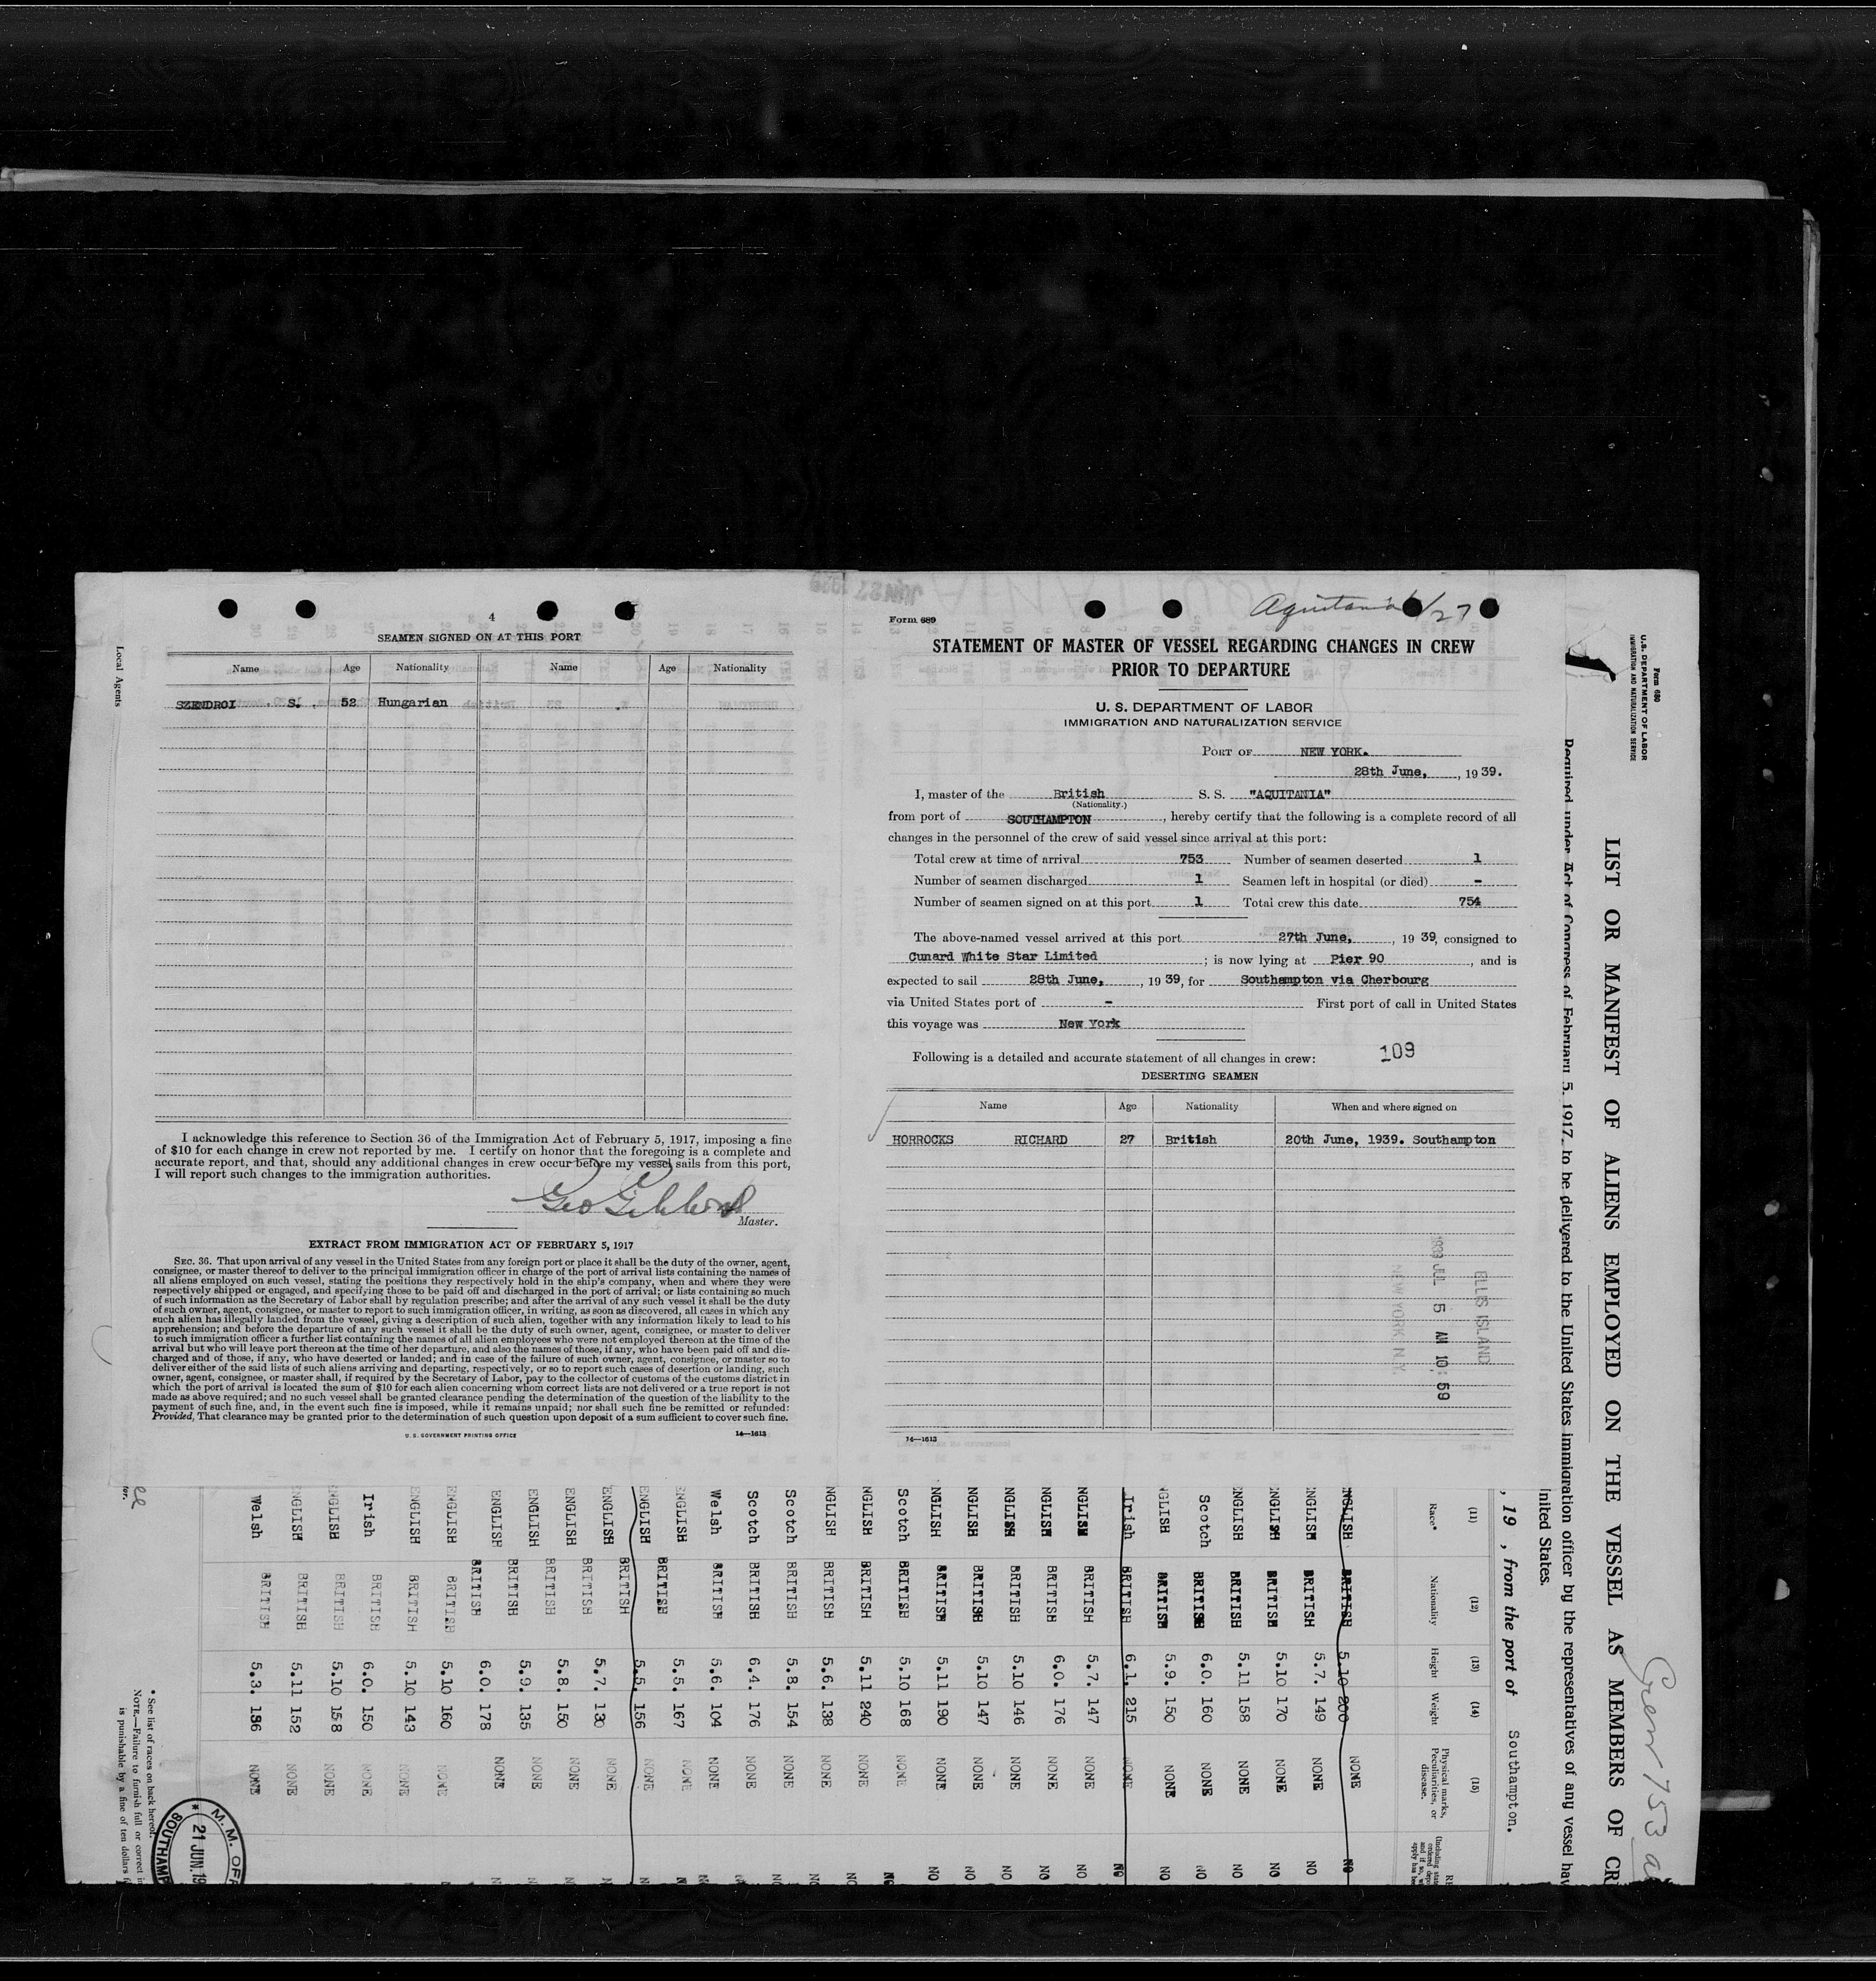 4
SEAMEN SIGNED ON AT THIS PORT
Name Age Nationality Name Age Nationality
SZENDROI S. 52 Hungarian
I acknowledge this reference to Section 36 of the Immigration Act of February 5, 1917, imposing a fine
of $10 for each change in crew not reported by me. I certify on honor that the foregoing is a complete and
accurate report, and that, should any additional changes in crew occur before my vessel sails from this port,
I will report such changes to the immigration authorities.
Geo Gibbons
Master.
EXTRACT FROM IMMIGRATION ACT OF FEBRUARY 5, 1917
SEC. 36. That upon arrival of any vessel in the United States from any foreign port or place it shall be the duty of the owner, agent,
consignee, or master thereof to deliver to the principal immigration officer in charge of the port of arrival lists containing the names of
all aliens employed on such vessel, stating the positions they respectively hold in the ship's company, when and where they were
respectively shipped or engaged, and specifying those to be paid off and discharged in the port of arrival; or lists containing so much
of such information as the Secretary of Labor shall by regulation prescribe; and after the arrival of any such vessel it shall be the duty
of such owner, agent, consignee, or master to report to such immigration officer, in writing, as soon as discovered, all cases in which any
such alien has illegally landed from the vessel, giving a description of such alien, together with any information likely to lead to his
apprehension; and before the departure of any such vessel it shall be the duty of such owner, agent, consignee, or master to deliver
to such immigration officer a further list containing the names of all alien employees who were not employed thereon at the time of the
arrival but who will leave port thereon at the time of her departure, and also the names of those, if any, who have been paid off and dis-
charged and of those, if any, who have deserted or landed; and in case of the failure of such owner, agent, consignee, or master so to
deliver either of the said lists of such aliens arriving and departing, respectively, or so to report such cases of desertion or landing, such
owner, agent, consignee, or master shall, if required by the Secretary of Labor, pay to the collector of customs of the customs district in
which the port of arrival is located the sum of $10 for each alien concerning whom correct lists are not delivered or a true report is not
made as above required; and no such vessel shall be granted clearance pending the determination of the question of the liability to the
payment of such fine, and, in the event such fine is imposed, while it remains unpaid; nor shall such fine be remitted or refunded:
Provided, That clearance may be granted prior to the determination of such question upon deposit of a sum sufficient to cover such fine.
U. S. GOVERNMENT PRINTING OFFICE 14—1613
Local Agents
Aquitania 6/27
Form 689
STATEMENT OF MASTER OF VESSEL REGARDING CHANGES IN CREW
PRIOR TO DEPARTURE
U. S. DEPARTMENT OF LABOR
IMMIGRATION AND NATURALIZATION SERVICE
PORT OF NEW YORK.
28th June, , 19 39.
I, master of the British S. S. "AQUITANIA"
(Nationality.)
from port of SOUTHAMPTON , hereby certify that the following is a complete record of all
changes in the personnel of the crew of said vessel since arrival at this port:
Total crew at time of arrival 753 Number of seamen deserted 1
Number of seamen discharged 1 Seamen left in hospital (or died) -
Number of seamen signed on at this port 1 Total crew this date 754
The above-named vessel arrived at this port 27th June, , 19 39, consigned to
Cunard White Star Limited ; is now lying at Pier 90 , and is
expected to sail 28th June, , 19 39, for Southampton via Cherbourg
via United States port of - First port of call in United States
this voyage was New York
Following is a detailed and accurate statement of all changes in crew: 109
DESERTING SEAMEN
Name Age Nationality When and where signed on
HORROCKS RICHARD 27 British 20th June, 1939. Southampton
ELLIS ISLAND
1939 JUL 5 AM 10:59
NEW YORK N.Y.
14—1613
Form 680
U. S. DEPARTMENT OF LABOR
IMMIGRATION AND NATURALIZATION SERVICE
LIST OR MANIFEST OF ALIENS EMPLOYED ON THE VESSEL AS MEMBERS OF CR
Crew 753
Required under Act of Congress of February 5, 1917, to be delivered to the United States immigration officer by the representatives of any vessel hav
nited States.
, 19 , from the port of Southampton.
(11) (12) (13) (14) (15)
Race* Nationality Height Weight Physical marks, Peculiarities, or disease.
NGLISH BRITISH 5.10 200 NONE NO
NGLISH BRITISH 5.7. 149 NONE NO
NGLISH BRITISH 5.10 170 NONE NO
NGLISH BRITISH 5.11 158 NONE NO
Scotch BRITISH 6.0. 160 NONE NO
GLISH BRITISH 5.9. 150 NONE NO
Irish BRITISH 6.1. 215 NONE NO
NGLISH BRITISH 5.7. 147 NONE NO
NGLISH BRITISH 6.0. 176 NONE NO
NGLISH BRITISH 5.10 146 NONE NO
NGLISH BRITISH 5.10 147 NONE NO
NGLISH BRITISH 5.11 190 NONE NO
Scotch BRITISH 5.10 168 NONE NO
NGLISH BRITISH 5.11 240 NONE NO
NGLISH BRITISH 5.6. 138 NONE NO
Scotch BRITISH 5.8. 154 NONE NO
Scotch BRITISH 6.4. 176 NONE
Welsh BRITISH 5.6. 104 NONE
ENGLISH BRITISH 5.5. 167 NONE
ENGLISH BRITISH 5.5. 156 NONE
ENGLISH BRITISH 5.7. 130 NONE
ENGLISH BRITISH 5.8. 150 NONE
ENGLISH BRITISH 5.9. 135 NONE
ENGLISH BRITISH 6.0. 178 NONE
ENGLISH BRITISH 5.10 160 NONE
ENGLISH BRITISH 5.10 143 NONE
Irish BRITISH 6.0. 150 NONE
NGLISH BRITISH 5.10 158 NONE
ENGLISH BRITISH 5.11 152 NONE
Welsh BRITISH 5.3. 136 NONE
* See list of races on back hereof.
NOTE.—Failure to furnish full or correct i
is punishable by a fine of ten dollars
M. M. OFF
21 JUN. 19
SOUTHAMP